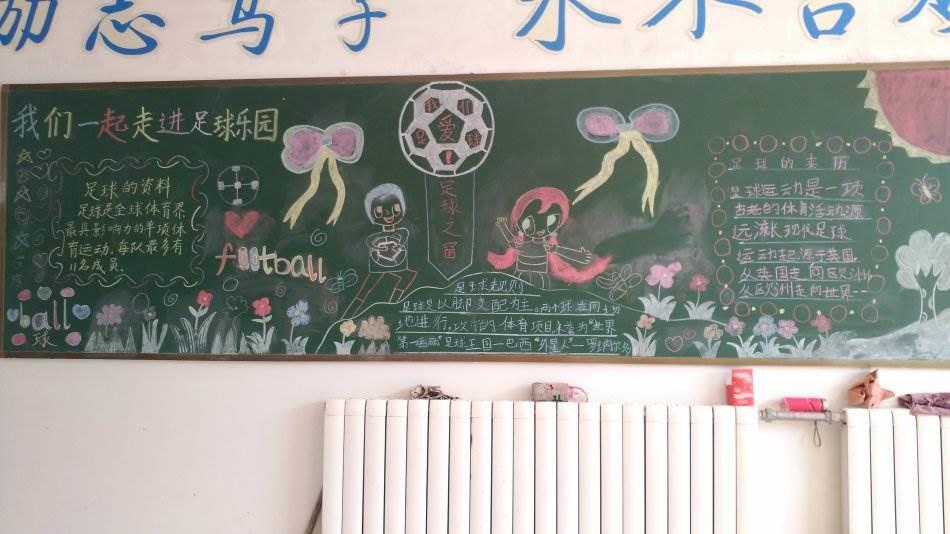 励志笃学
我们一起走进足球乐园
足球的资料
足球是全球体育界
最具影响力的单项体
育运动，每队最多有
11名成员。
ball
球
football
我们
爱
足球
足球之窗
足球规则
足球是以脚支配为主，两个球在同一场
地进行，攻守的体育项目，誉为"世界
第一运动"足球王国一巴西"外星人"一罗纳尔多
足球的来历
足球运动是一项
古老的体育活动源
远流长现代足球
运动起源于英国
从英国走向欧洲
从欧洲走向世界